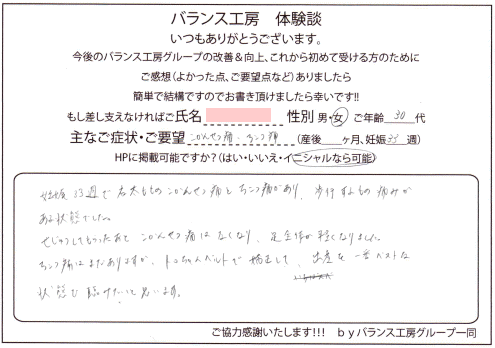 バランス工房　体験談
いつもありがとうございます。
今後のバランス工房グループの改善＆向上、これから初めて受ける方のために
ご感想（よかった点、ご要望点など）ありましたら
簡単で結構ですのでお書き頂けましたら幸いです!!
もし差し支えなければご氏名　性別 男・女　ご年齢 30 代
主なご症状・ご要望 こかんせつ痛・ちこつ痛（産後　ヶ月、妊娠 33 週）
HPに掲載可能ですか？（はい・いいえ・イニシャルなら可能）
妊娠33週で右太ももの こかんせつ痛と ちこつ痛があり、歩行するもの痛みが
ある状態でした。
せじゅつしてもらったあと こかんせつ痛はなくなり、足全体が軽くなりました。
ちこつ痛はまだありますが、トコちゃんベルトで 矯正して、出産を一番ベストな
状態で臨みたいと思います。
ご協力感謝いたします!!!　ｂｙバランス工房グループ一同